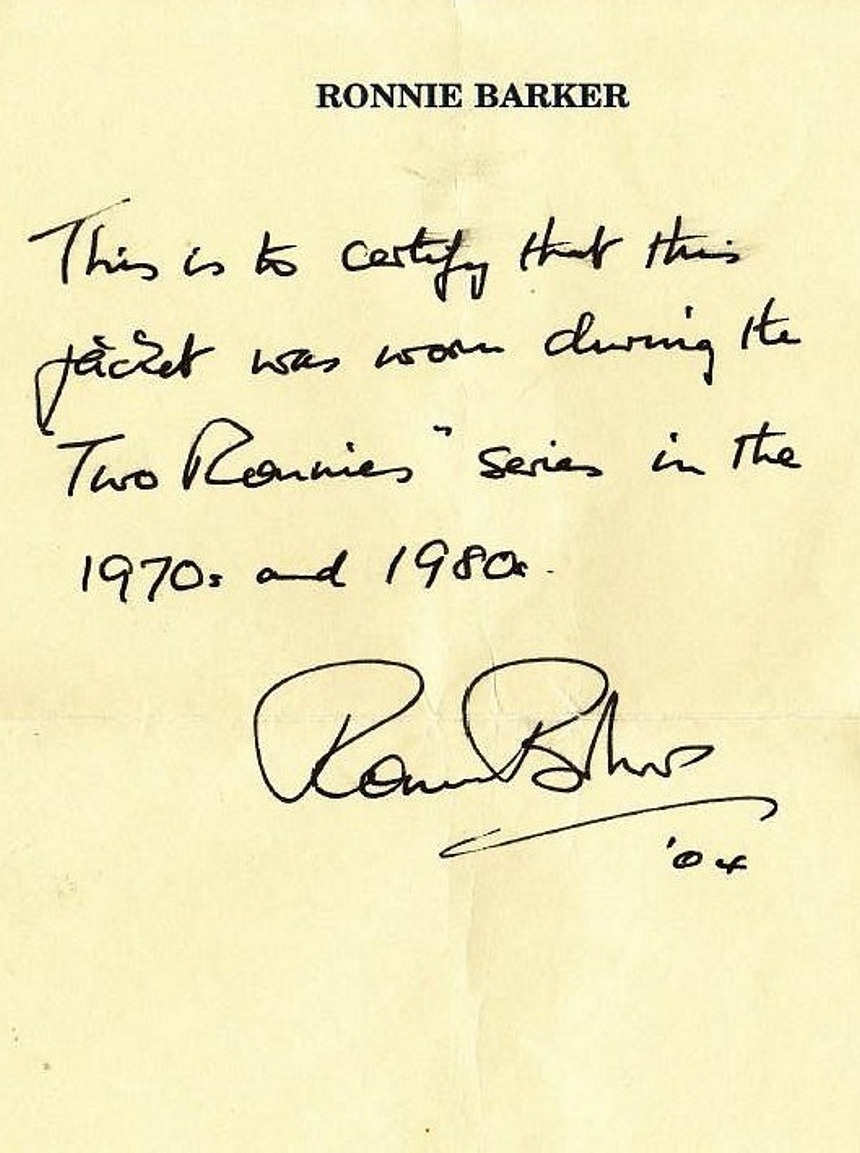 RONNIE BARKER
This is to certify that this
jacket was worn during the
"Two Ronnies" series in the
1970s and 1980s.
Ronnie Barker
'04